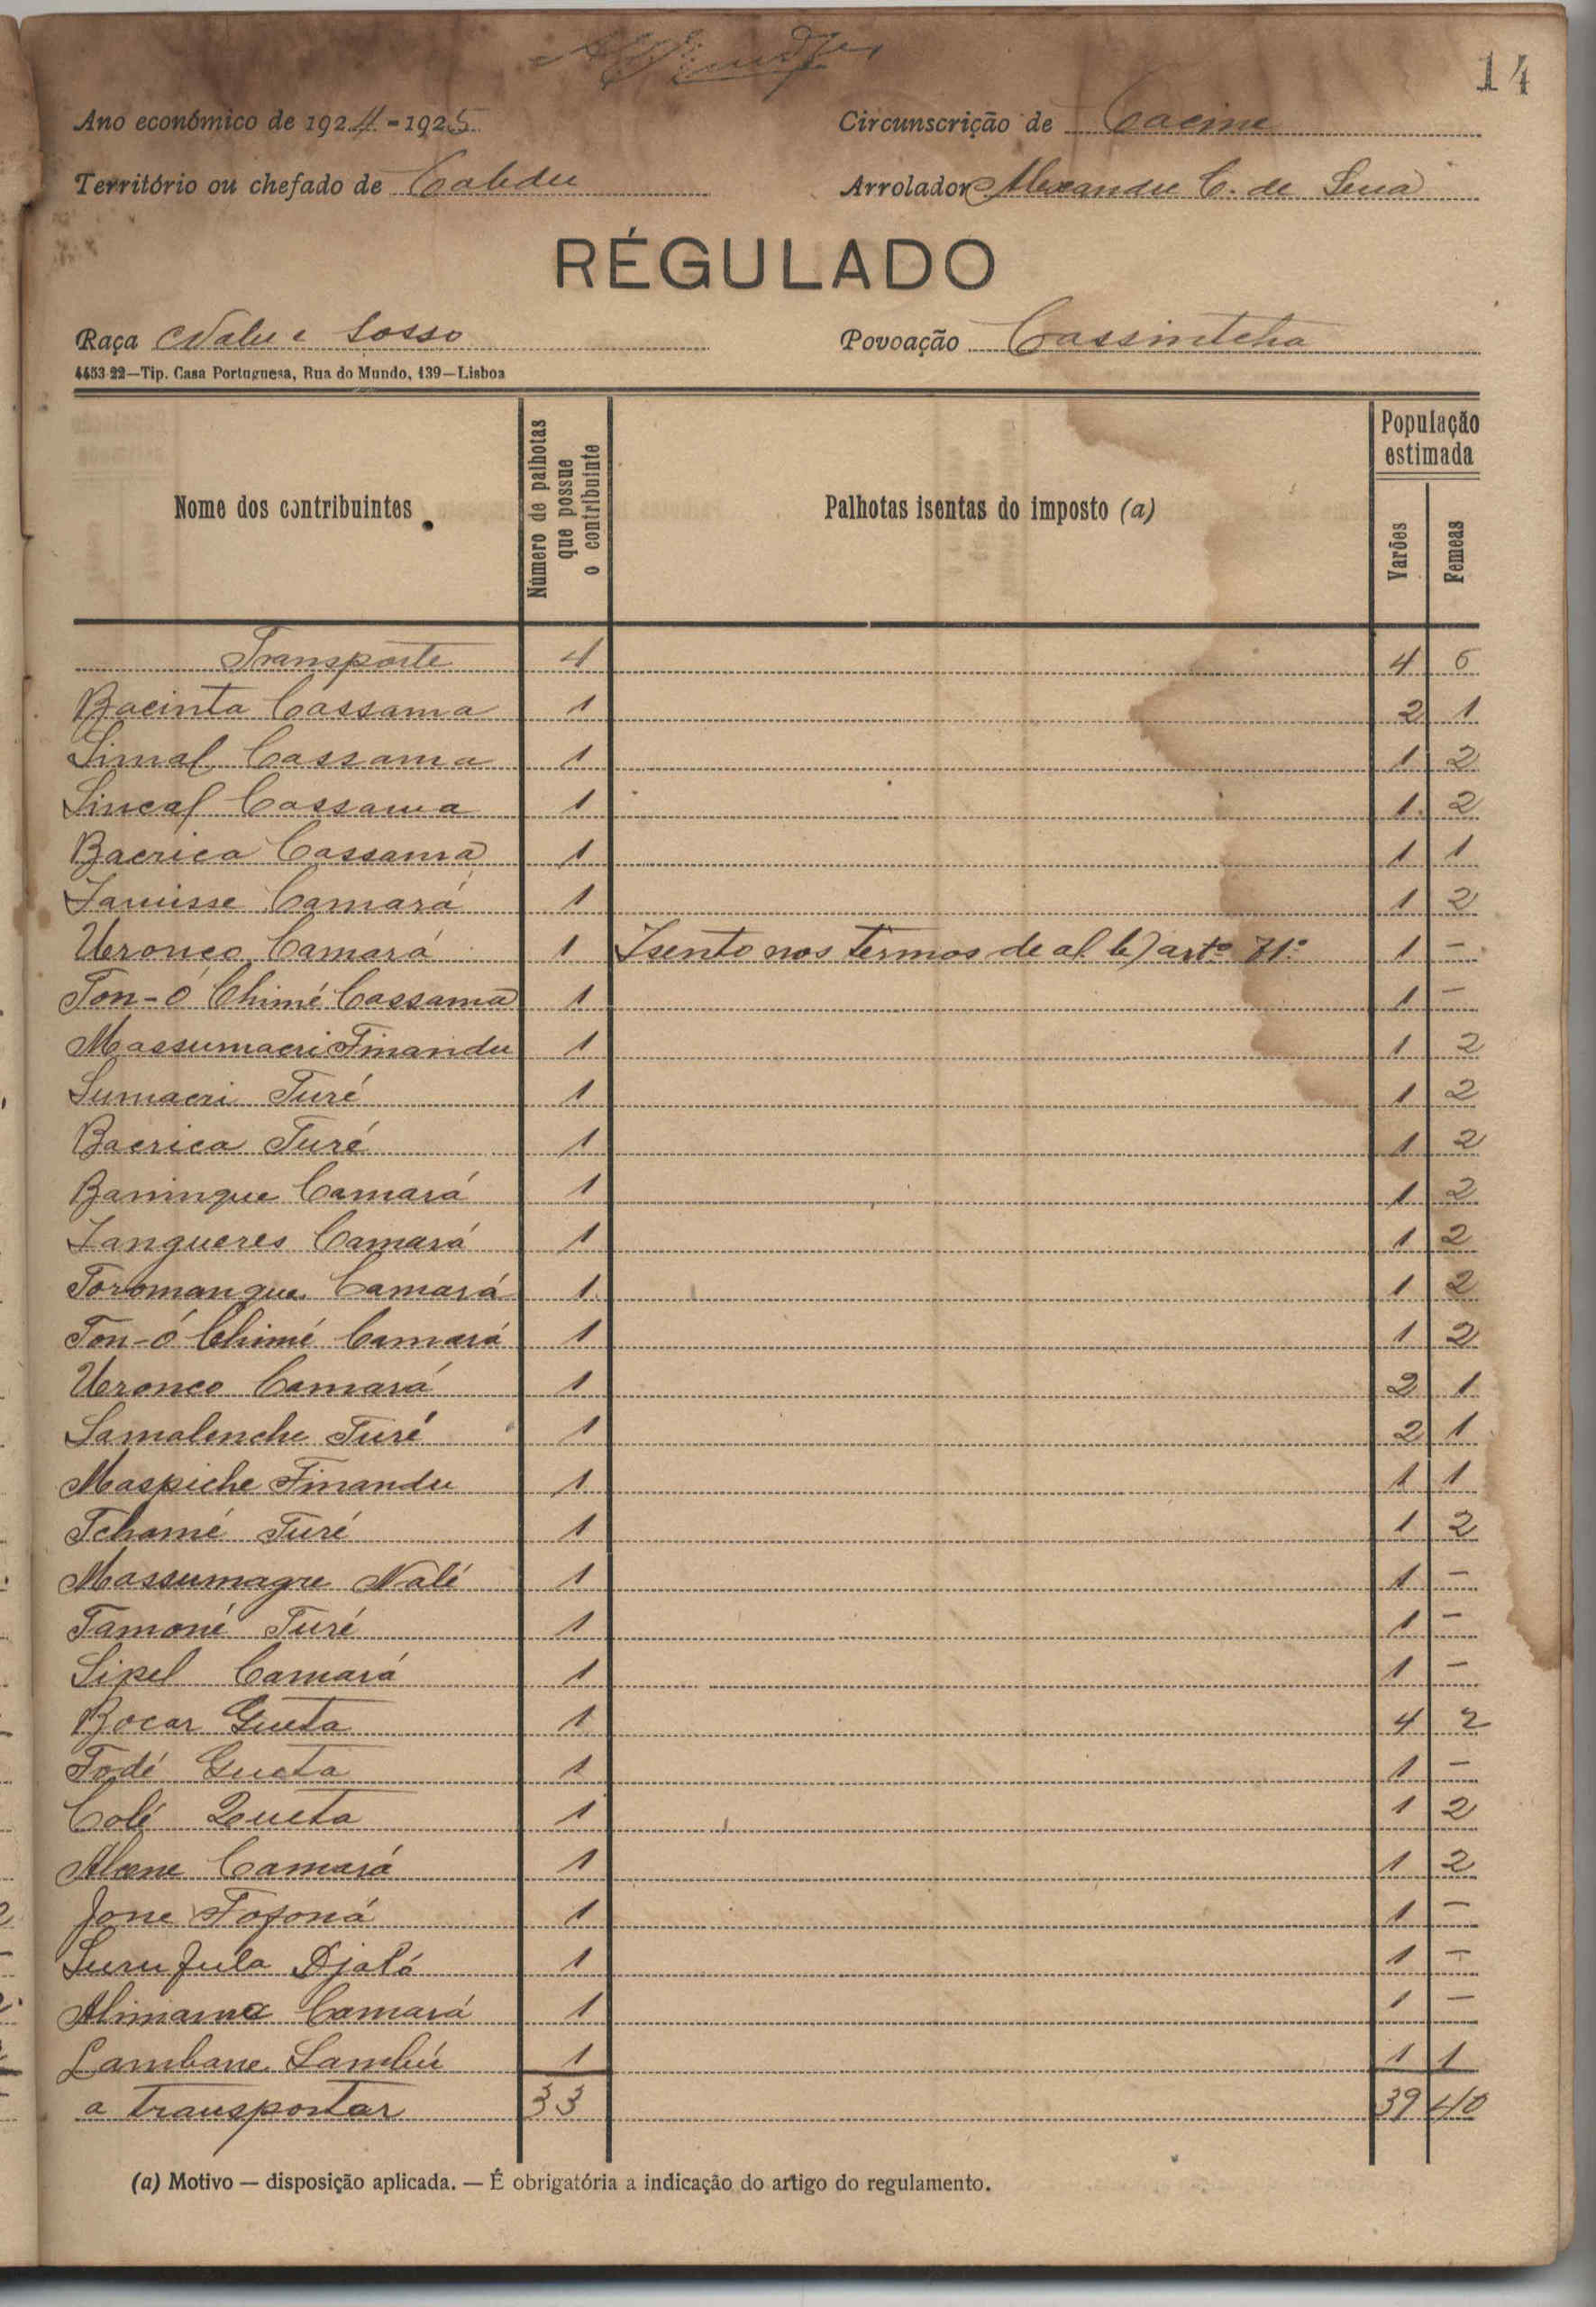 14
Ano económico de 1924-1925 Circunscrição de Cacine
Território ou chefado de Cabedu Arrolador Alexandre C. de Sena
RÉGULADO
Raça Nalu e Sosso Povoação Cassintcha
4453-22—Tip. Casa Portuguesa, Rua do Mundo, 139—Lisboa
Nome dos contribuintes Número de palhotas que possue o contribuinte Palhotas isentas do imposto (a) População estimada Varões Femeas
Transporte 4 4 6
Bacinta Cassama 1 2 1
Simal Cassama 1 1 2
Sincal Cassama 1 1 2
Bacrica Cassama 1 1 1
Januisse Camará 1 1 2
Uronco Camará 1 Isento nos termos de al. b) artº 71º 1 —
Ton-ó Chimé Cassama 1 1 —
Massumacri Finandu 1 1 2
Sumacri Turé 1 1 2
Bacrica Turé 1 1 2
Baninque Camará 1 1 2
Jangueres Camará 1 1 2
Toromangue Camará 1 1 2
Ton-ó Chimé Camará 1 1 2
Uronco Camará 1 2 1
Samalenche Turé 1 2 1
Maspiche Finandu 1 1 1
Tchamé Turé 1 1 2
Massumagre Nalé 1 1 —
Tamoné Turé 1 1 —
Sipel Camará 1 1 —
Bocar Gueta 1 4 2
Todé Gueta 1 1 —
Colé Queta 1 1 2
Alcene Camará 1 1 2
Jone Fofoná 1 1 —
Suru fula Djaló 1 1 —
Alimama Camará 1 1 —
Lambane Sambú 1 1 1
a transportar 33 39 40
(a) Motivo — disposição aplicada. — É obrigatória a indicação do artigo do regulamento.